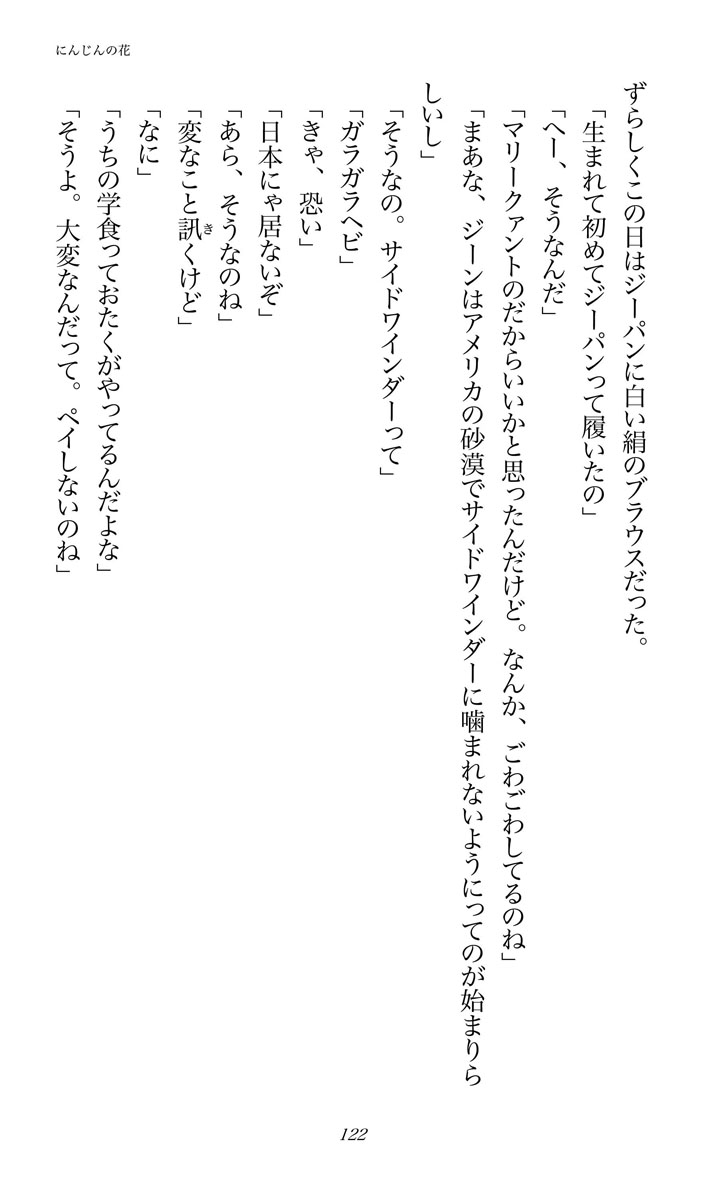 にんじんの花
ずらしくこの日はジーパンに白い絹のブラウスだった。
「生まれて初めてジーパンって履いたの」
「へー、そうなんだ」
「マリークァントのだからいいかと思ったんだけど。なんか、ごわごわしてるのね」
「まあな、ジーンはアメリカの砂漠でサイドワインダーに噛まれないようにってのが始まりら
しいし」
「そうなの。サイドワインダーって」
「ガラガラヘビ」
「きゃ、恐い」
「日本にゃ居ないぞ」
「あら、そうなのね」
「変なこと訊くけど」
き
「なに」
「うちの学食っておたくがやってるんだよな」
「そうよ。大変なんだって。ペイしないのね」
122